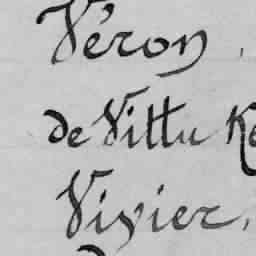 Véron,
de Vittu
Vivier,